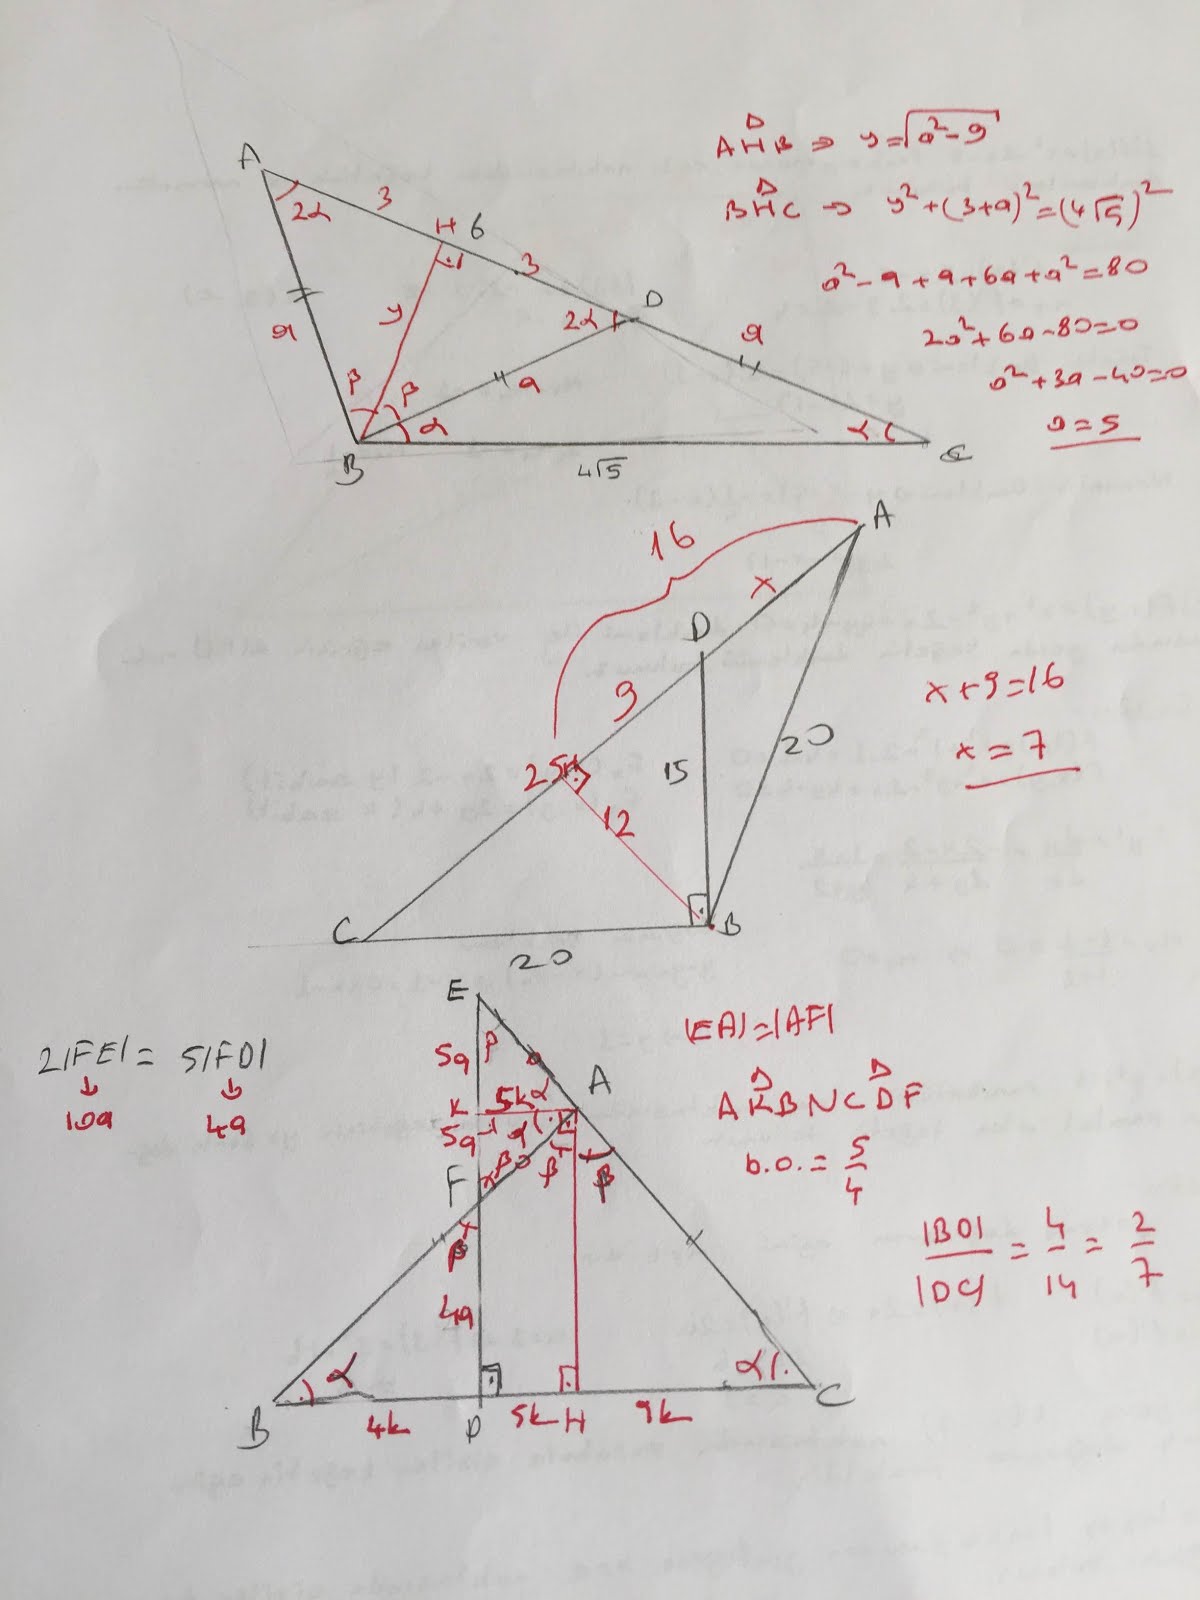 A
2α
3
H
6
3
D
2α
y
a
a
a
β
β
α
α
B
4√5
C
AHB ⇒ y=√a²-9
BHC ⇒ y²+(3+a)²=(4√5)²
a²-9+9+6a+a²=80
2a²+6a-80=0
a²+3a-40=0
a=5
16
A
x
D
9
25
H
12
15
20
C
B
20
x+9=16
x=7
E
2|FE|= 5|FD|
10a
4a
5a
β
α
A
K
5k
5a
α
β
β
β
F
β
4a
α
α
B
4k
D
5k
H
9k
C
|EA|=|AF|
AKB~CDF
b.o.=5/4
|BD|/|DC|=4/14=2/7